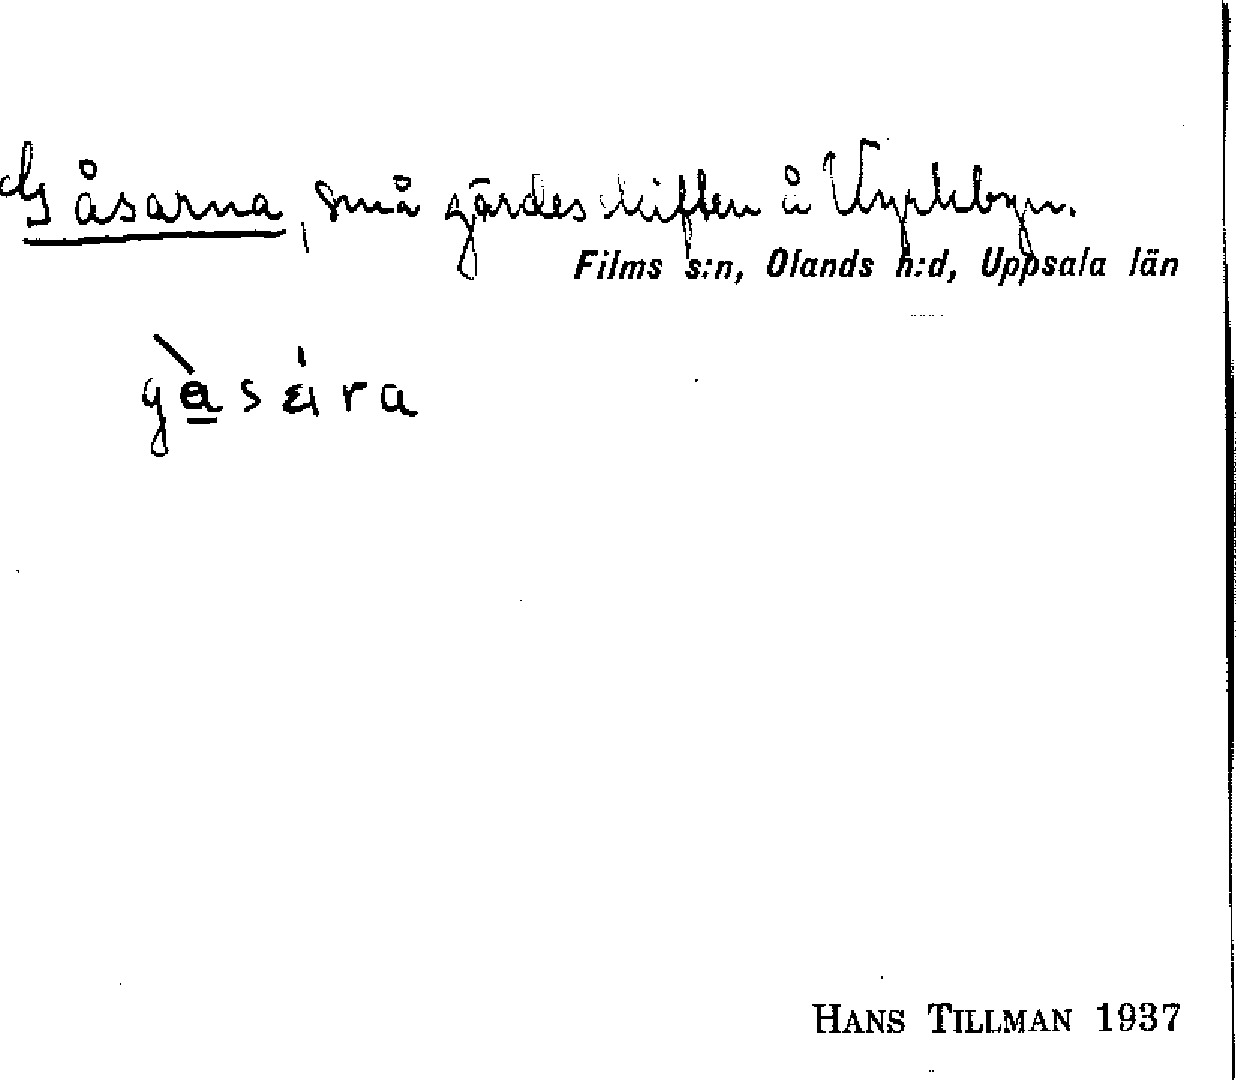 Gåsarna, små gärdesskiften å Vyrkbyn.
Films s:n, Olands h:d, Uppsala län
HANS TILLMAN 1937